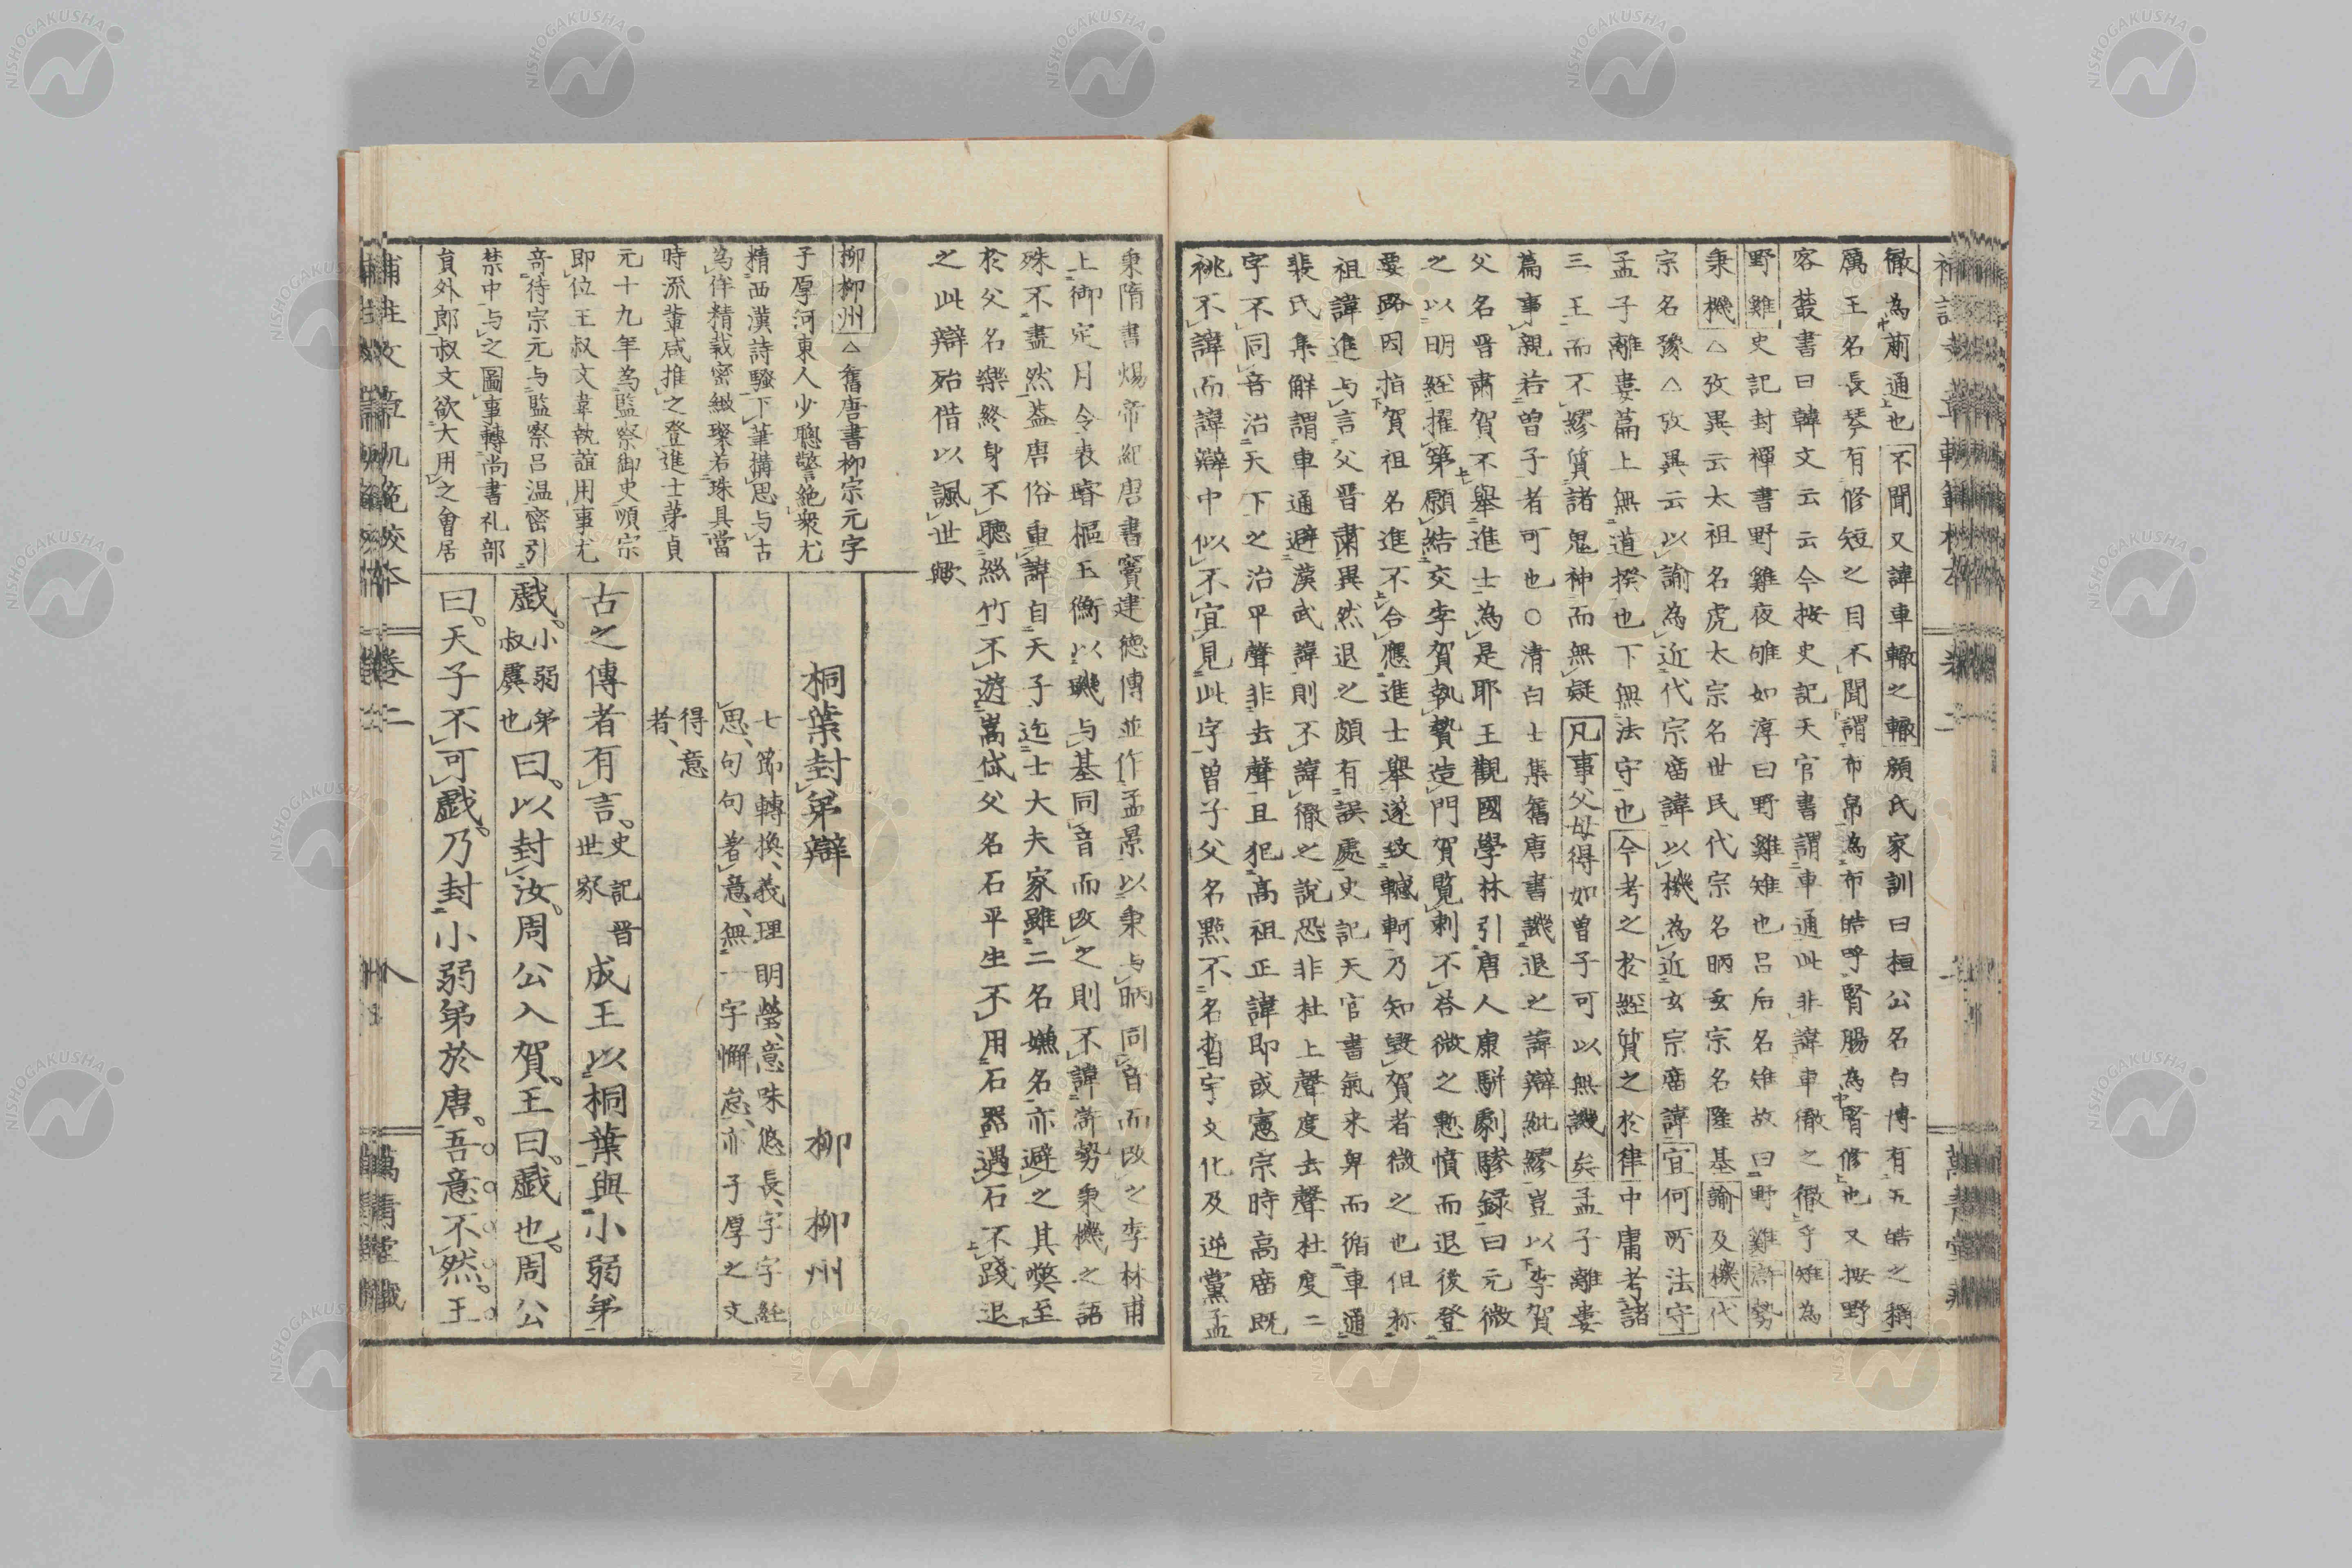 徹為蒯通也不聞又諱車轍之轍顔氏家訓曰桓公名白博有五皓之稱
厲王名長琴有修短之目不聞謂布帛為布皓呼腎腸為腎修也又按野
客叢書曰韓文云云今按史記天官書謂車通此非諱車徹之徹乎雉為
野雞史記封禪書野雞夜雊如淳曰野雞雉也呂后名雉故曰野雞滸勢
秉機△攷異云太祖名虎太宗名世民代宗名昞玄宗名隆基諭及機代
宗名豫△攷異云以諭為近代宗庿諱以機為近玄宗庿諱宜何所法守
孟子離婁篇上無道揆也下無法守也今考之於經質之於律中庸考諸
三王而不繆質諸鬼神而無疑凡事父母得如曽子可以無譏矣孟子離婁
篇事親若曽子者可也○清白士集舊唐書譏退之諱辯紕繆豈以李賀
父名晋肅賀不舉進士為是耶王觀國學林引唐人康駢劇談録曰元微
之以明經擢第願結交李賀執贄造門賀覧刺不荅微之慙憤而退後登
要路因指賀祖名進不合應進士舉遂致轗軻乃知毀賀者微之也但称
祖諱進与言父晋肅異然退之頗有誤處史記天官書氣来卑而循車通
裴氏集解謂車通避漢武諱則不諱徹之說恐非杜上聲度去聲杜度二
字不同音治天下之治平聲非去聲且犯高祖正諱即或憲宗時高庿既
祧不諱而諱辯中似不宜見此字曽子父名㸃不名晳宇文化及逆黨孟
秉隋書煬帝紀唐書竇建德傳並作孟景以秉与昞同音而改之李林甫
上御定月令表睿樞玉衡以璣与基同音而改之則不諱滸勢秉機之語
殊不盡然葢唐俗重諱自天子迄士大夫家雖二名嫌名亦避之其獘至
於父名樂終身不聽絲竹不遊嵩岱父名石平生不用石器遇石不踐退
之此辯殆借以諷世歟
柳柳州△舊唐書柳宗元字
子厚河東人少聰警絶衆尤
精西漢詩騷下筆搆思与古
為侔精裁密緻璨若珠貝當
時流輩咸推之登進士苐貞
元十九年為監察御史順宗
即位王叔文韋執誼用事尤
竒待宗元与監察呂温密引
禁中与之圖事轉尚書礼部
員外郎叔文欲大用之會居
桐葉封弟辯　柳柳州
七節轉換、義理明瑩、意味悠長、字字経
思、句句著意、無一字懈怠、亦子厚之文
得意
者、
古之傳者有言。史記晋世家成王以桐葉與小弱弟
戯。小弱弟叔虞也曰。以封汝。周公入賀。王曰。戯也。周公
曰。天子不可戯。乃封小弱弟於唐。吾意不然。王
卷二
八